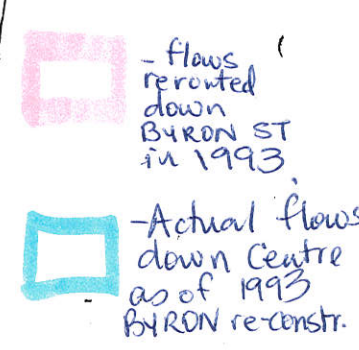 - flows
rerouted
down
BYRON ST
in 1993
-Actual flows
down Centre
as of 1993
BYRON re-constr.